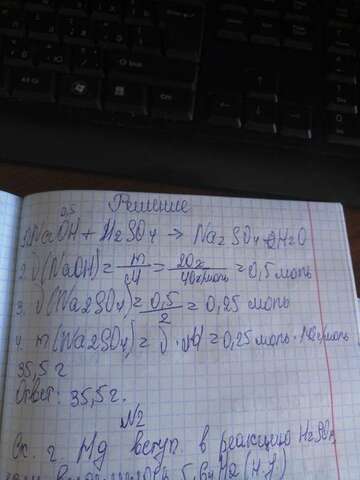 Решение
0,5
2NaOH + H2SO4 → Na2SO4 + 2H2O
2. ν(NaOH) = m/M = 20г/40г/моль = 0,5 моль
3. ν(Na2SO4) = 0,5/2 = 0,25 моль
4. m(Na2SO4) = ν · M = 0,25 моль ·
35,5 г
Ответ: 35,5 г.
N2
Ск. г. Mg вступ. в реакцию H2SO4
(н.у)